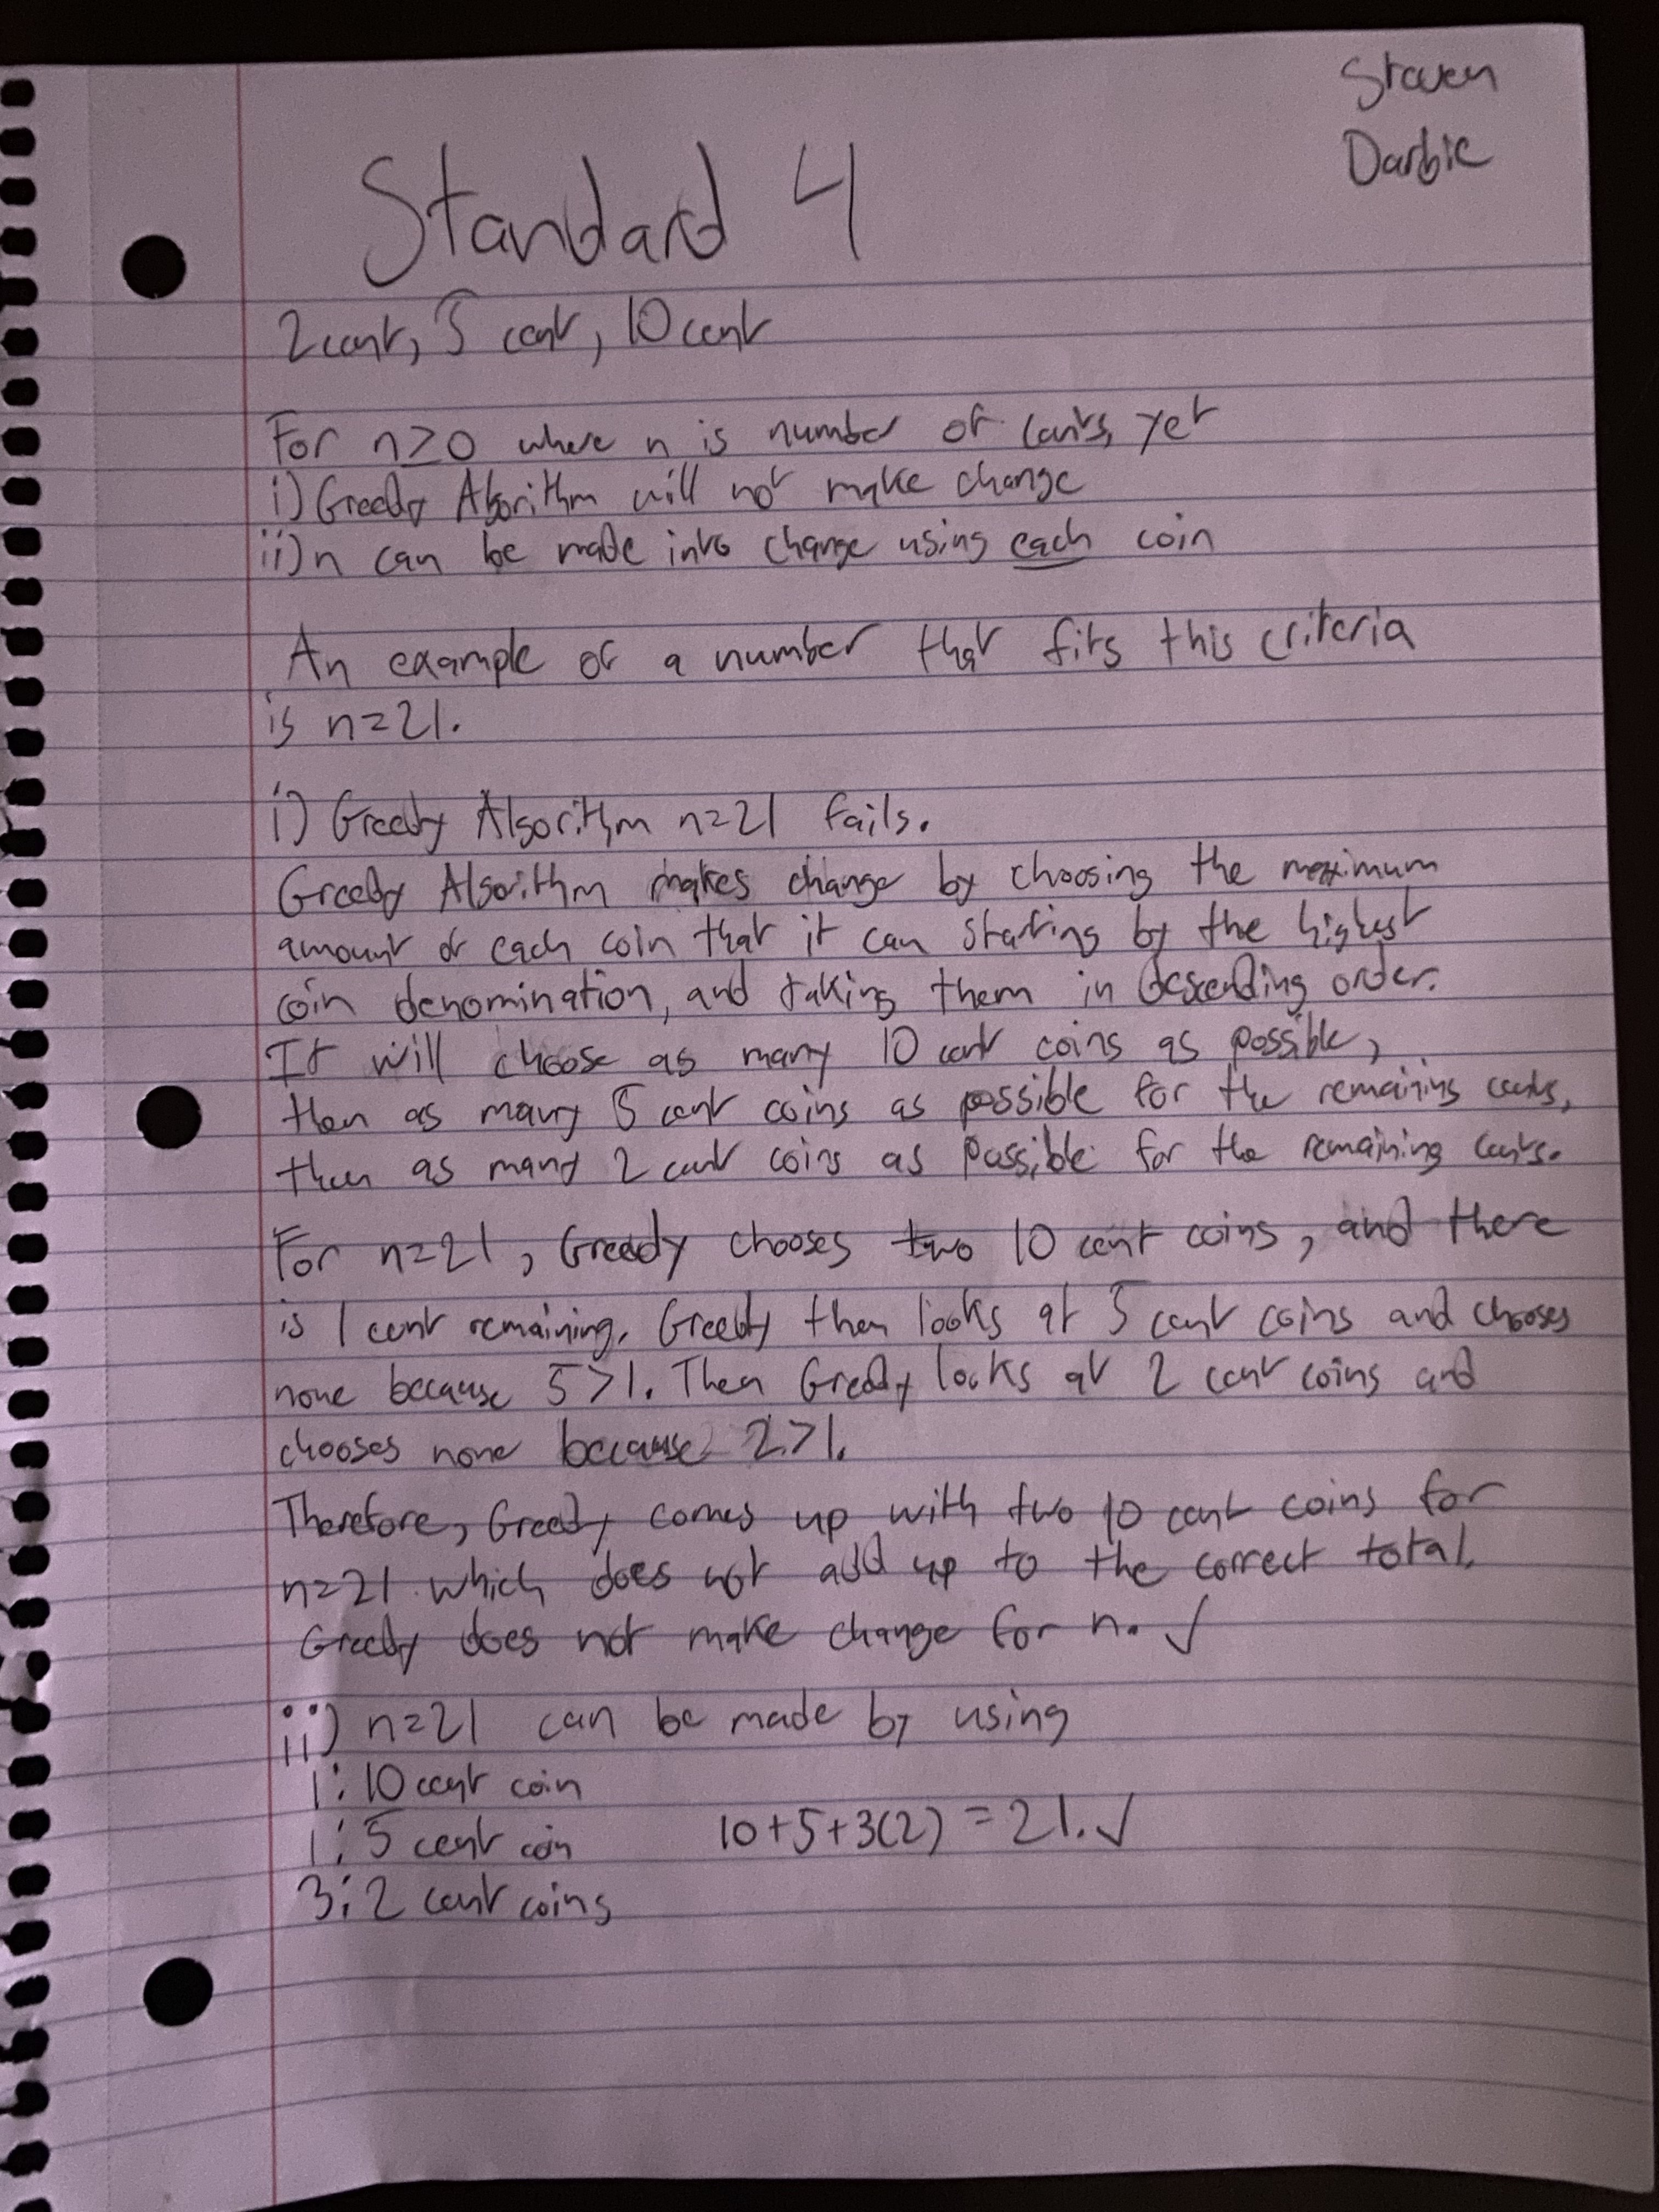 Steven
Darbie
Standard 4
2 cent, 5 cent, 10 cent
For n≥0 where n is number of cents, yet
i) Greedy Algorithm will not make change
ii) n can be made into change using each coin
An example of a number that fits this criteria
is n=21.
i) Greedy Algorithm n=21 fails.
Greedy Algorithm makes change by choosing the maximum
amount of each coin that it can starting by the highest
coin denomination, and taking them in descending order.
It will choose as many 10 cent coins as possible,
then as many 5 cent coins as possible for the remaining cents,
then as many 2 cent coins as possible for the remaining cents.
For n=21, Greedy chooses two 10 cent coins, and there
is 1 cent remaining. Greedy then looks at 5 cent coins and chooses
none because 5>1. Then Greedy looks at 2 cent coins and
chooses none because 2>1.
Therefore, Greedy comes up with two 10 cent coins for
n=21 which does not add up to the correct total.
Greedy does not make change for n. ✓
ii) n=21 can be made by using
1: 10 cent coin
1: 5 cent coin 10+5+3(2) = 21. ✓
3: 2 cent coins